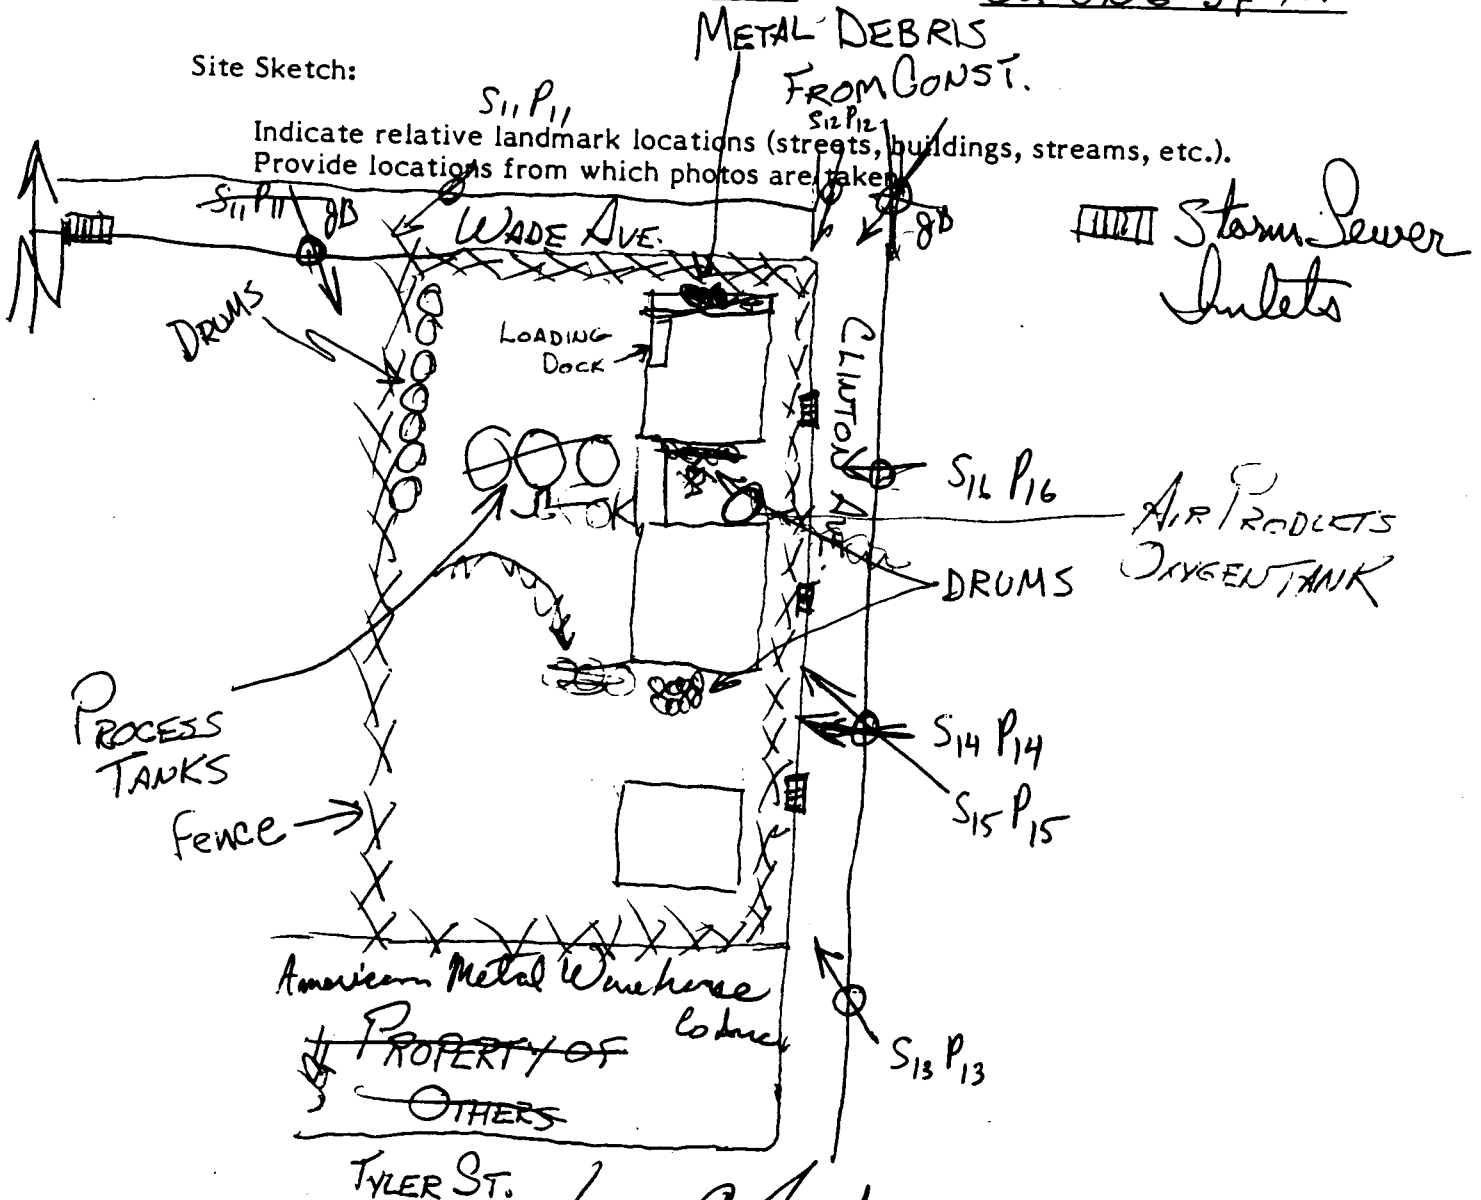 METAL DEBRIS
FROM CONST.
Site Sketch:
S11 P11
S12 P12
Indicate relative landmark locations (streets, buildings, streams, etc.).
Provide locations from which photos are taken
S11 P11 JB
WADE AVE.
JB
Storm Sewer
Inlets
DRUMS
LOADING
DOCK
CLINTON AVE.
S16 P16
AIR PRODUCTS
OXYGEN TANK
DRUMS
PROCESS
TANKS
S14 P14
S15 P15
Fence
American Metal Warehouse
Co Inc
PROPERTY OF
OTHERS
S13 P13
TYLER ST.
N